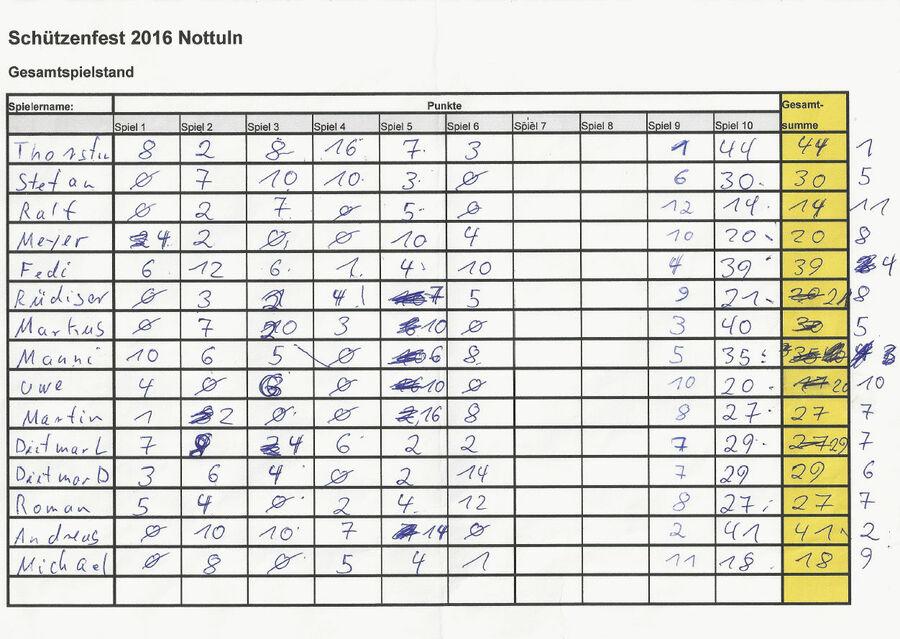 Schützenfest 2016 Nottuln
Gesamtspielstand
Spielername: Punkte Gesamt-
Spiel 1 Spiel 2 Spiel 3 Spiel 4 Spiel 5 Spiel 6 Spiel 7 Spiel 8 Spiel 9 Spiel 10 summe
Thorsten 8 2 8 16 7 3 1 44 44 1
Stefan 0 7 10 10 3 0 6 30 30 5
Ralf 0 2 7 0 5 0 12 14 14 11
Meyer 4 2 0 0 10 4 10 20 20 8
Fedi 6 12 6 1 4 10 4 39 39 4
Rüdiger 0 3 2 4 7 5 9 21 21 8
Markus 0 7 20 3 10 0 3 40 5
Manni 10 6 5 0 6 8 5 35 3
Uwe 4 0 6 0 10 0 10 20 20 10
Martin 1 2 0 0 16 8 8 27 27 7
Dietmar L 7 4 6 2 2 7 29 29 7
Dietmar D 3 6 4 0 2 14 7 29 29 6
Roman 5 4 0 2 4 12 8 27 27 7
Andreas 0 10 10 7 14 0 2 41 41 2
Michael 0 8 0 5 4 1 11 18 18 9